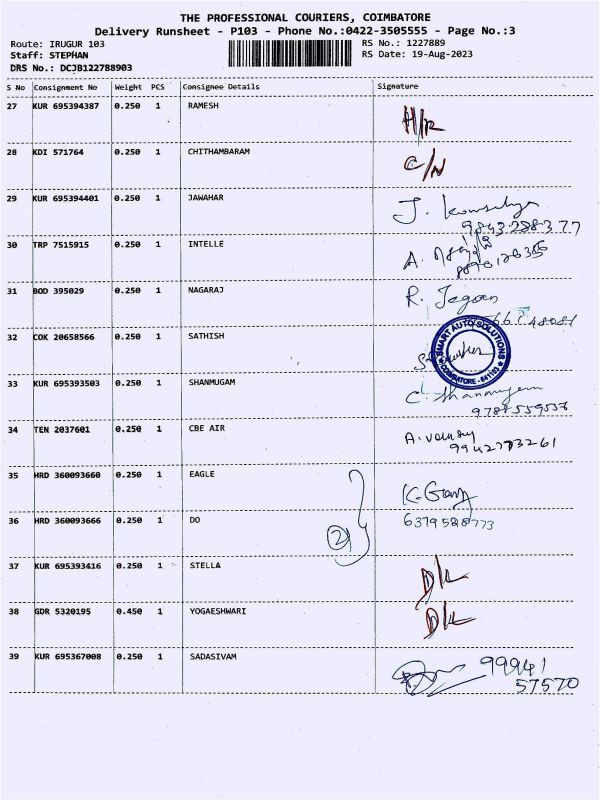 THE PROFESSIONAL COURIERS, COIMBATORE
Delivery Runsheet - P103 - Phone No.:0422-3505555 - Page No.:3
Route: IRUGUR 103 RS No.: 1227889
Staff: STEPHAN RS Date: 19-Aug-2023
DRS No.: DCJB122788903
S No Consignment No Weight PCS Consignee Details Signature
27 KUR 695394387 0.250 1 RAMESH
H/R
28 KDI 571764 0.250 1 CHITHAMBARAM
C/N
29 KUR 695394401 0.250 1 JAWAHAR
J.
9843288377
30 TRP 7515915 0.250 1 INTELLE
A.
31 BOD 395029 0.250 1 NAGARAJ
R. Jegan
32 COK 20658566 0.250 1 SATHISH
SMART AUTO SOLUTIONS
COIMBATORE - 641103
33 KUR 695393503 0.250 1 SHANMUGAM
C. Shanmugam
34 TEN 2037601 0.250 1 CBE AIR
A.
9942773261
35 HRD 360093660 0.250 1 EAGLE
K.
36 HRD 360093666 0.250 1 DO
2
37 KUR 695393416 0.250 1 STELLA
D/L
38 GDR 5320195 0.450 1 YOGAESHWARI
D/L
39 KUR 695367008 0.250 1 SADASIVAM
99941
57570